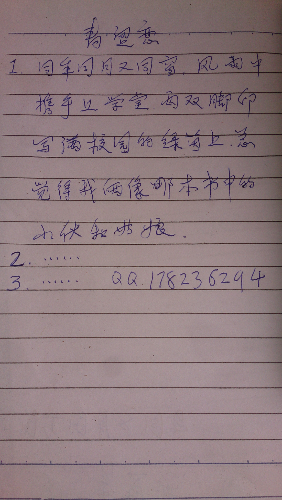 书
1. 同年同月又同窗,风雨中
携手上学堂.两双脚印
写满校园的绿荫上.总
觉得我俩像那本书中的
小伙和姑娘.
2. ……
3. …… QQ.178236294